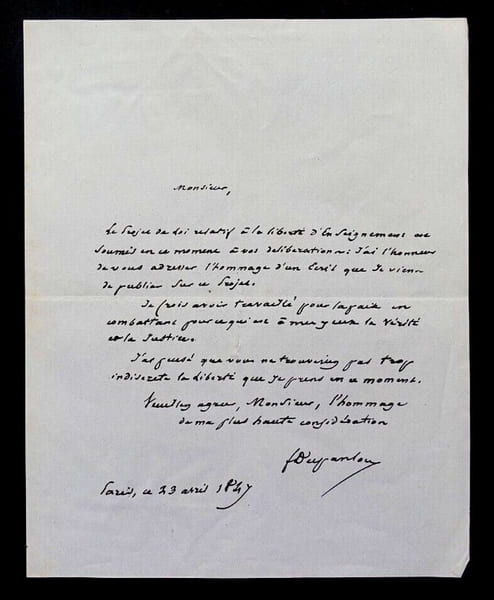 Monsieur,
Le Projet de Loi relatif à la liberté d'Enseignement est
soumis en ce moment à vos délibérations: j'ai l'honneur
de vous adresser l'hommage d'un Ecrit que je viens
de publier sur ce Projet.
Je crois avoir travaillé pour la paix en
combattant pour ce qui est à mes yeux la Vérité
et la Justice.
J'ai pensé que vous ne trouviriez pas trop
indiscrete la liberté que je prens en ce moment.
Veuillez agréer, Monsieur, l'hommage
de ma plus haute considération
fDupanloup
Paris, ce 23 avril 1847